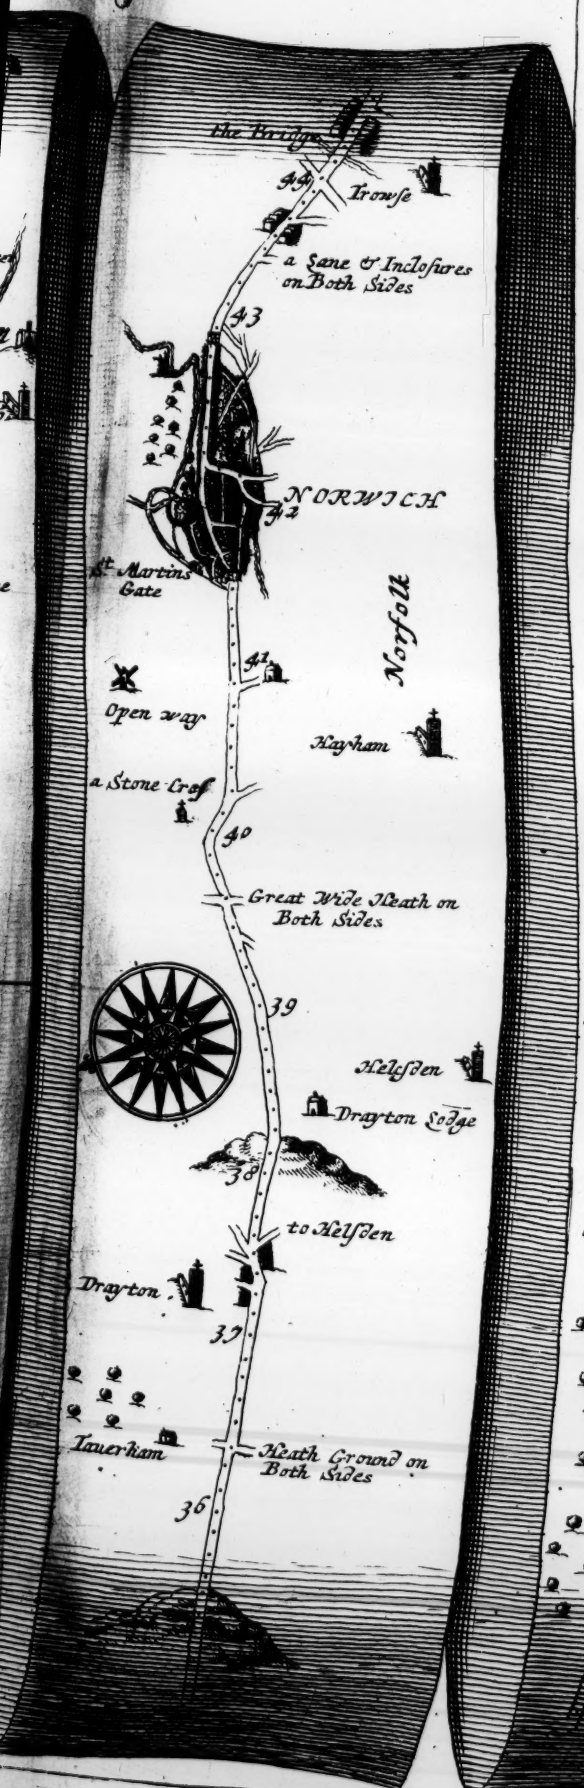 the Bridge
44
Trowse
a Lane & Inclosures
on Both Sides
43
NORWICH
42
St Martins
Gate
Norfolk
41
Open way
Hayham
a Stone Cross
40
Great Wide Heath on
Both Sides
39
Helesden
Drayton Lodge
38
to Helsden
Drayton
37
Taverham
Heath Ground on
Both Sides
36